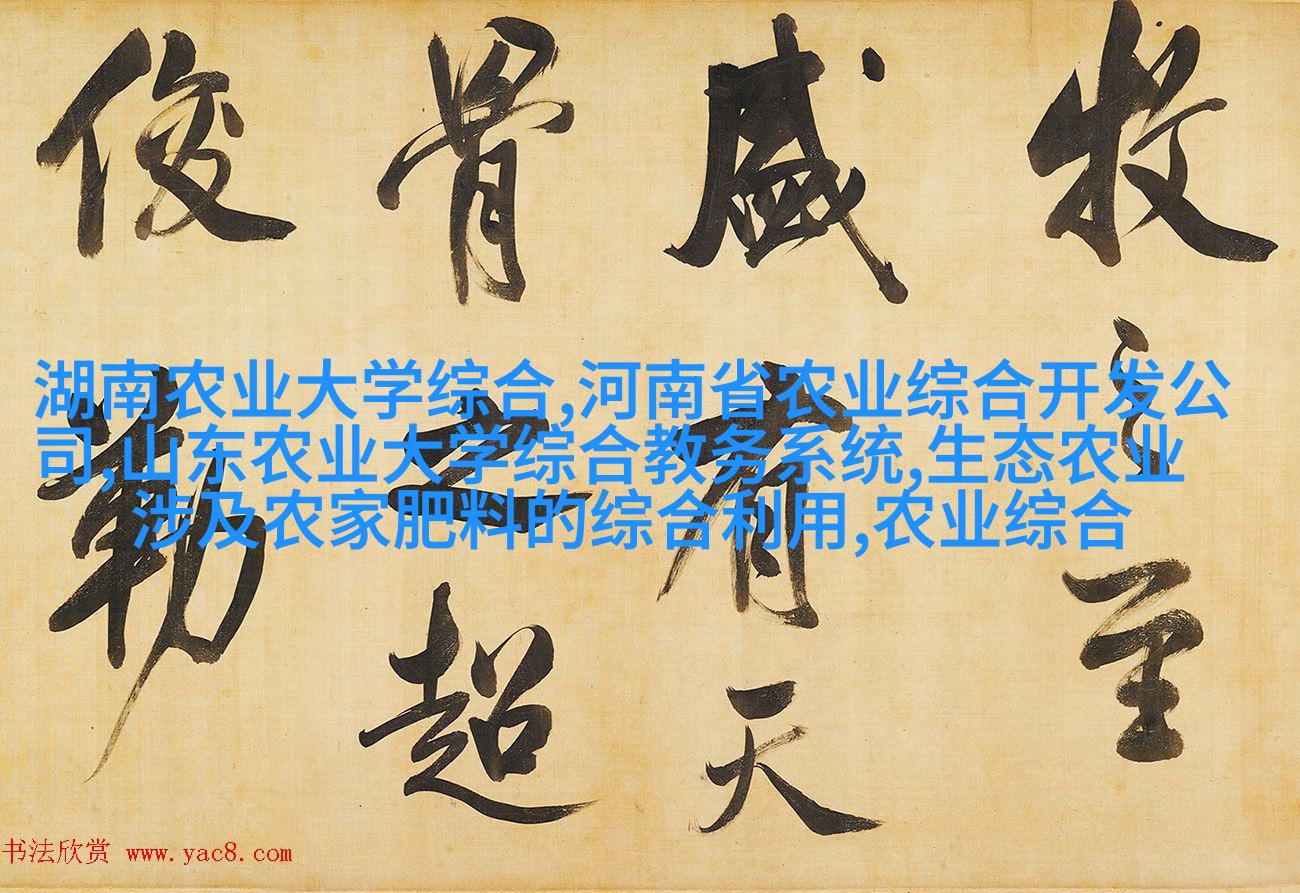 牧之至
盛有天
骨之超
俊勒
湖南农业大学综合,河南省农业综合开发公
司,山东农业大学综合教务系统,生态农业
涉及农家肥料的综合利用,农业综合
书法欣赏 www.yac8.com